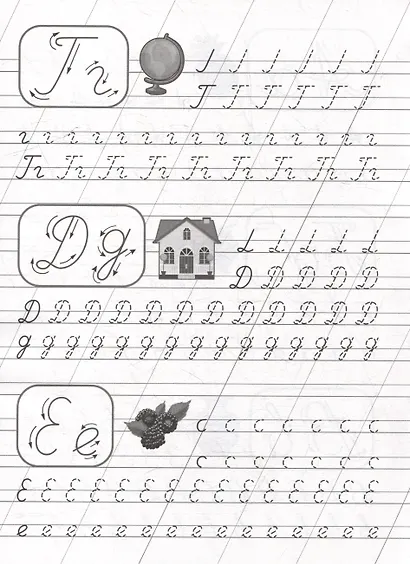 Г г
Г Г Г Г Г Г
г г г г г г г г г г г г г г г г
Гг Гг Гг Гг Гг Гг Гг Гг Гг
Д д
Д Д Д Д Д
Д Д Д Д Д Д Д Д Д Д Д Д
д д д д д д д д д д д д д д д
Е е
Е Е Е Е Е Е Е Е Е Е Е Е Е Е Е
е е е е е е е е е е е е е е е